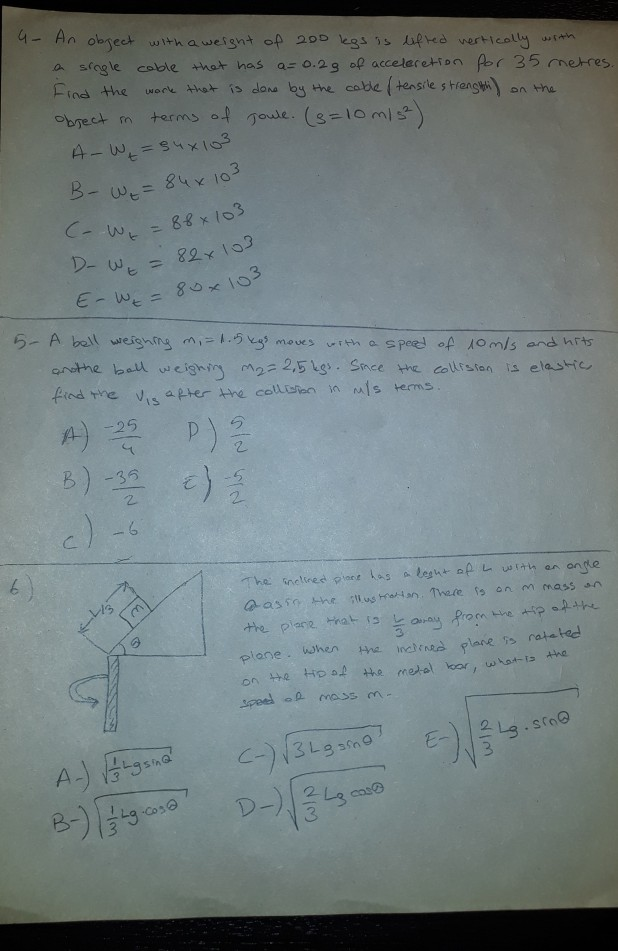 4- An object with a weight of 200 kgs is lifted vertically with
a single cable that has a=0.2g of acceleretion for 35 metres.
Find the work that is done by the cable (tensile strength) on the
object in terms of joule. (g=10m/s²)
A- Wt = 94x10³
B- Wt = 84x10³
C- Wt = 88x10³
D- Wt = 82x10³
E- Wt = 80x10³
5- A ball weighing m₁=1.5kgs moves with a speed of 10m/s and hits
anothe ball weighing m₂=2,5kgs. Since the collision is elastic
find the V₁s after the collision in m/s terms.
A) -25/4 D) 5/2
B) -35/2 E) -5/2
C) -6
6)
The inclined place has a leght of L with an angle
θ as in the illustration. There is an m mass on
the plane that is L/3 away from the tip of the
plane. When the inclined plane is rotated
on the tip of the metal bar, what is the
speed of mass m.
L/3
m
θ
A-) √(1/3 Lg sinθ)
C-) √(3Lg sinθ)
E-) √(2/3 Lg.sinθ)
B-) √(1/3 Lg.cosθ)
D-) √(2/3 Lg cosθ)